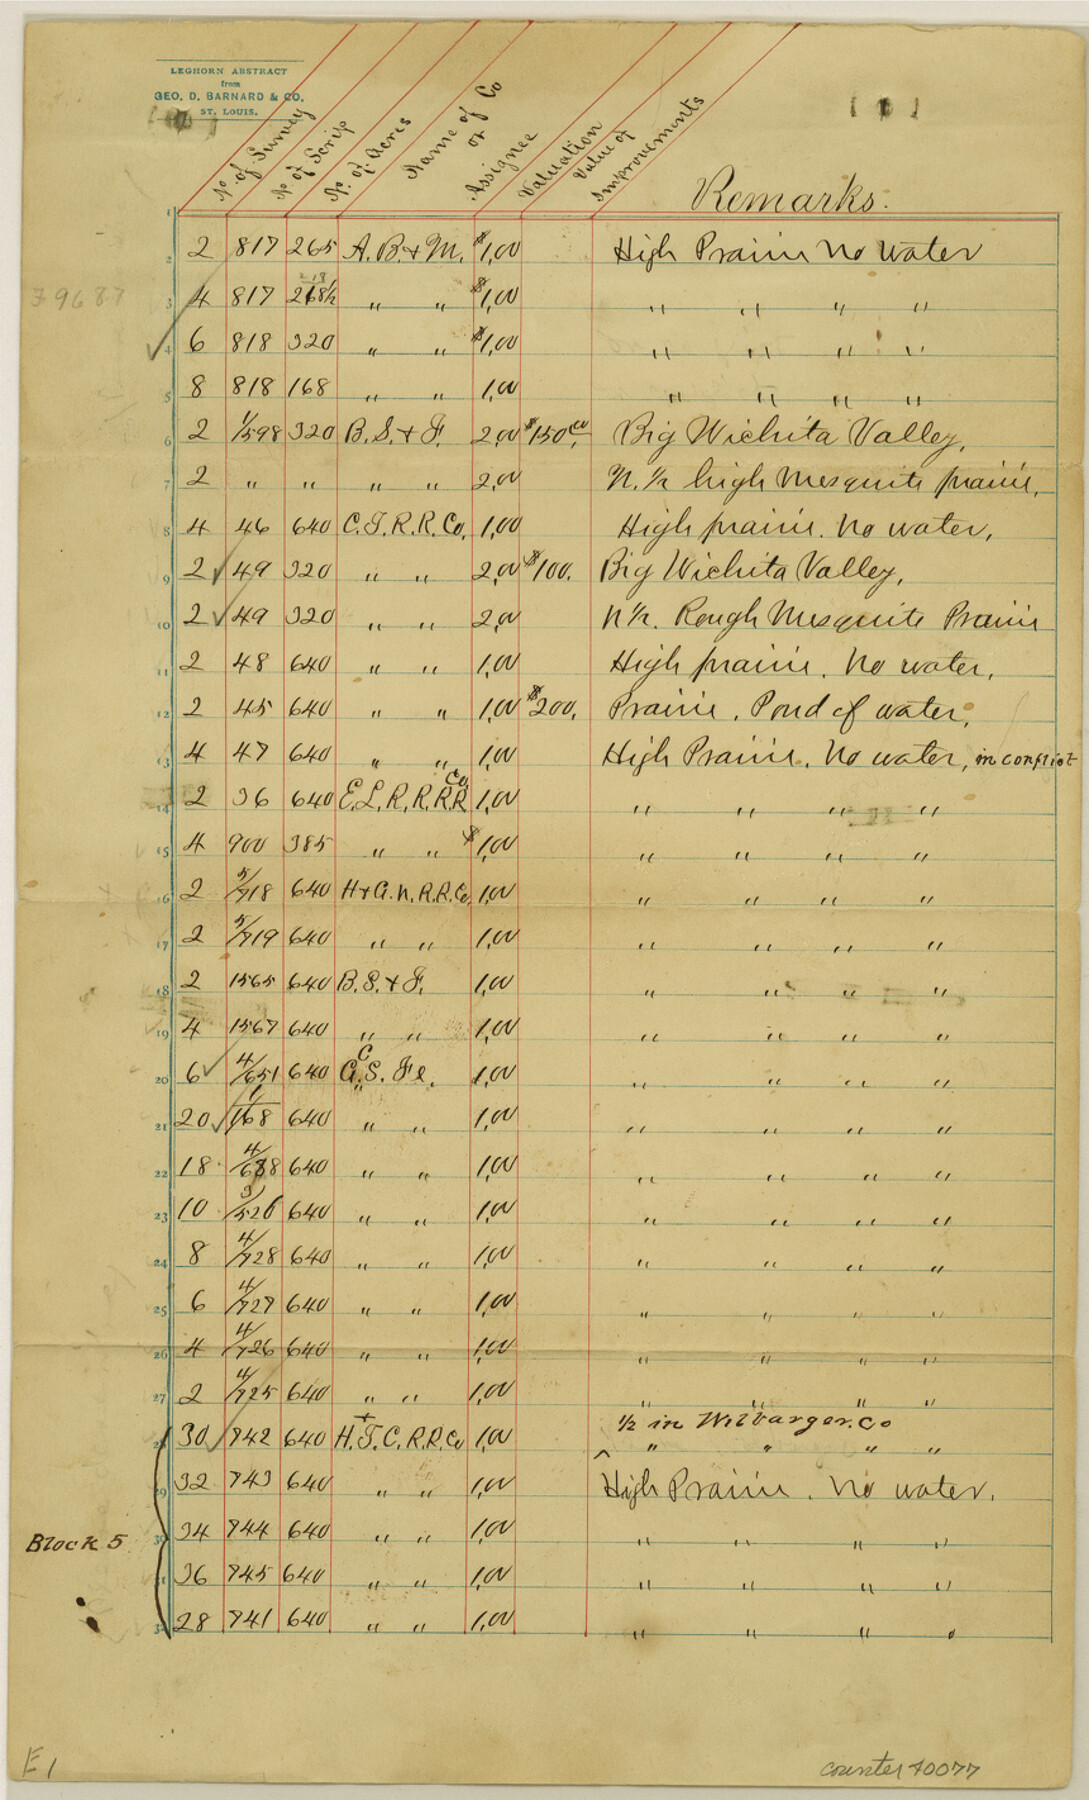 LEGHORN ABSTRACT
from
GEO. D. BARNARD & CO.
ST. LOUIS.
( 1 )
No. of Survey
No of Scrip
No. of Acres
Name of Co or Assignee
Valuation
Value of Improvements
Remarks.
39687
1
2 2 817 265 A. B. & M. $1,00 High Prairie No water
3 4 817 268½ 218 " " $1,00 " " " "
4 6 818 320 " " $1,00 " " " "
5 8 818 168 " " 1,00 " " " "
6 2 1/598 320 B. S. & F. 2,00 $150,00 Big Wichita Valley,
7 2 " " " " 2,00 N. ½ high Mesquite prairie,
8 4 46 640 C. T. R. R. Co. 1,00 High prairie. No water,
9 2 49 320 " " 2,00 $100, Big Wichita Valley,
10 2 49 320 " " 2,00 N½. Rough Mesquite Prairie
11 2 48 640 " " 1,00 High prairie. No water,
12 2 45 640 " " 1,00 $200, Prairie, Pond of water,
13 4 47 640 " " 1,00 High Prairie. No water, in conflict
14 2 36 640 E. L. R. R. R.R Co. 1,00 " " " "
15 4 900 385 " " $1,00 " " " "
16 2 5/718 640 H & G. N. R. R. Co. 1,00 " " " "
17 2 5/719 640 " " 1,00 " " " "
18 2 1565 640 B. S. & F. 1,00 " " " "
19 4 1567 640 " " 1,00 " " " "
20 6 4/651 640 G. C. S. Fe. 1,00 " " " "
21 20 1/168 640 " " 1,00 " " " "
22 18 4/688 640 " " 1,00 " " " "
23 10 3/526 640 " " 1,00 " " " "
24 8 4/728 640 " " 1,00 " " " "
25 6 4/727 640 " " 1,00 " " " "
26 4 4/726 640 " " 1,00 " " " "
27 2 4/725 640 " " 1,00 " " " "
½ in Wilbarger. Co
28 30 742 640 H. & T. C. R. R. Co 1,00 ^ " " " "
29 32 743 640 " " 1,00 High Prairie. No water.
Block 5
30 34 744 640 " " 1,00 " " " "
31 36 745 640 " " 1,00 " " " "
32 28 741 640 " " 1,00 " " " "
E 1
counter 40077